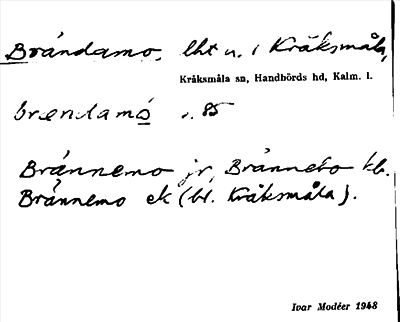 Brándamo, lht n. i Kråksmåla,
Kråksmåla sn, Handbörds hd, Kalm. l.
brændamó s. 85
Brännemo jr, Brännebo kb.
Brännemo ek (bl. Kråksmåla).
Ivar Modéer 1948